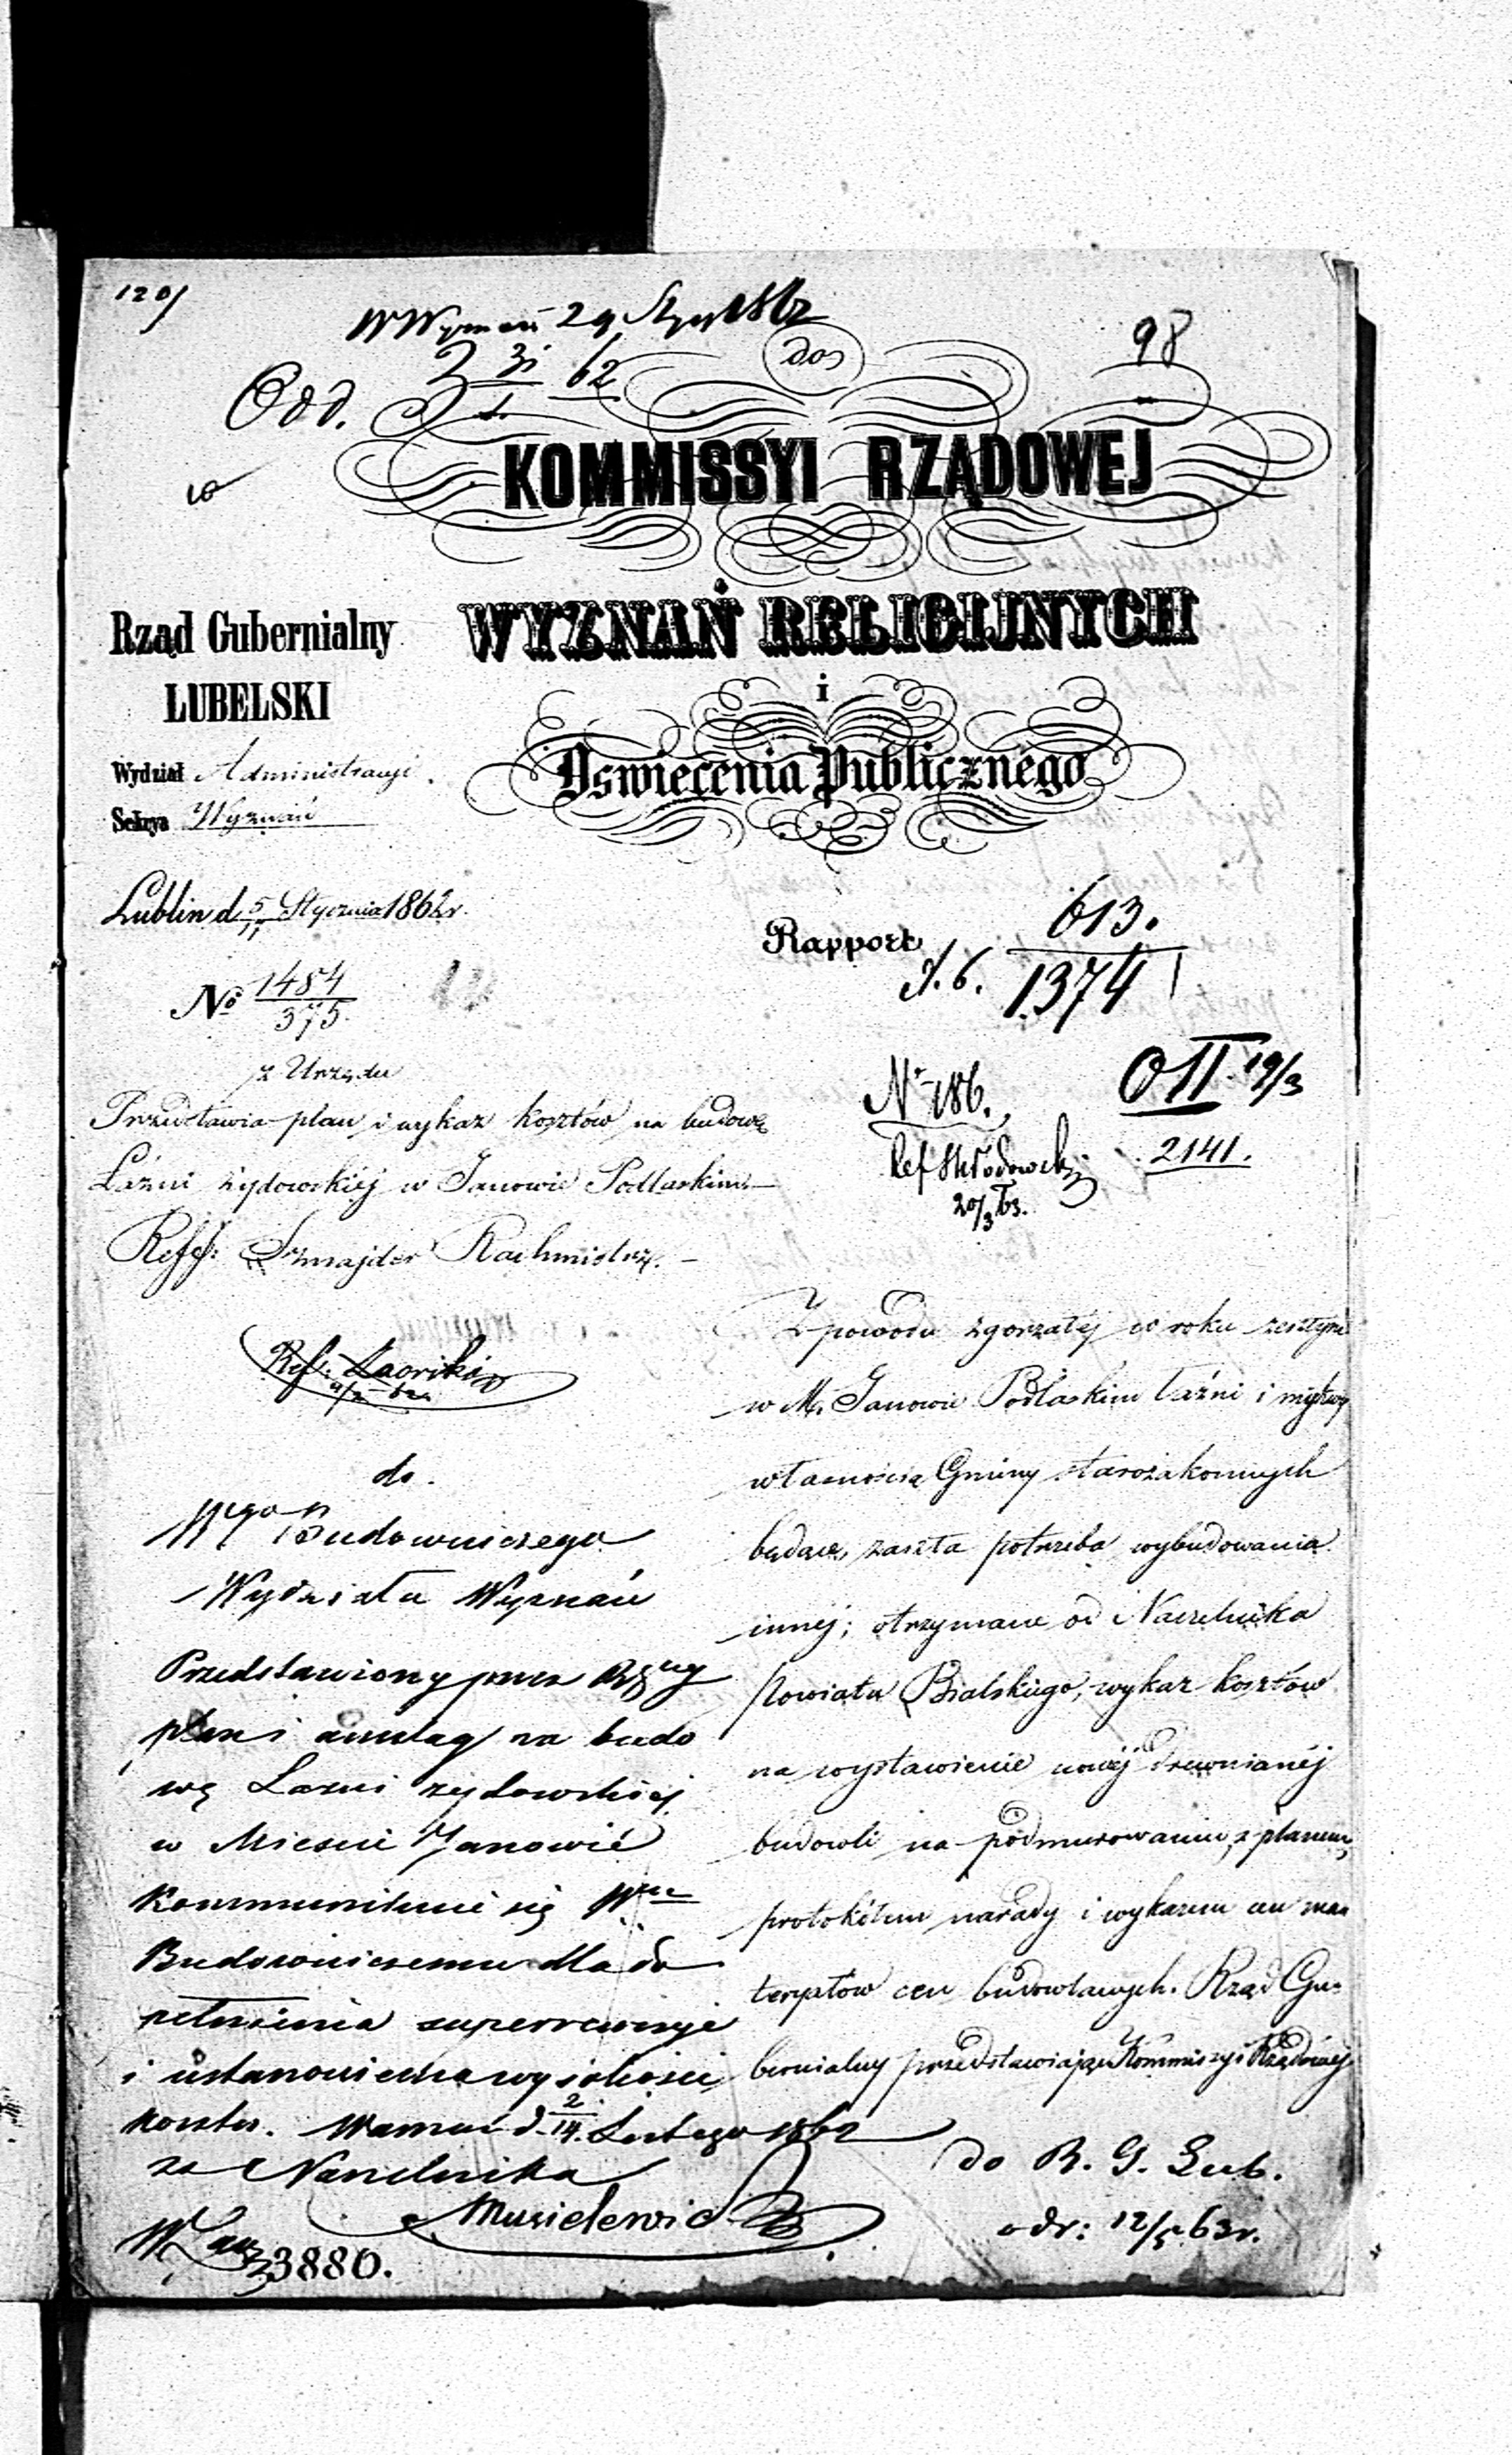 120/
W Wyznań 29 Stycz 1862
98
Odd.
31 62
do
KOMMISSYI RZĄDOWEJ
WYZNAŃ RELIGIJNYCH
i
Oswiecenia Publicznego
Rząd Gubernialny
LUBELSKI
Wydział Administracyi.
Sekcya Wyznań
Lublin d. 5/17 Stycznia 1862 r.
No 1484/375
z Urzędu
Przedstawia plan i wykaz kosztów na budowę
Łaźni żydowskiej w Janowie Podlaskim
Reff: Sznajder Rachmistrz.
Rapport
613.
1374
No 186.
O II 19/3
2141.
Ref Skłodowski
20/3 63.
do.
Wgo Budowniczego
Wydziału Wyznań
Przedstawiony przez
plan i anszlag na budo
wę Łazni żydowskiej
w Miescie Janowie
kommunikuje się
Budowniczemu dla do
pełnienia superrewizyi
i ustanowienia wysokości
kosztu. Warszawa d. 2/14. Lutego 1862
za Naczelnika
Musielewicz
33880.
Z powodu zgorzałej w roku zeszłym
w M. Janowie Podlaskim łaźni i mykwy
własnością Gminy starozakonnych
będące, zaszła potrzeba wybudowania
innej; otrzymane od Naczelnika
Powiatu Bialskiego, wykaz kosztów
na wystawienie nowej drewnianej
budowli na podmurowaniu, z planem,
protokółem narady i wykazem cen ma
teryałów cen budowlanych. Rząd Gu-
bernialny przedstawiając Kommissyi Rządowej
do R. G. Lub.
odr: 12/5 63 r.